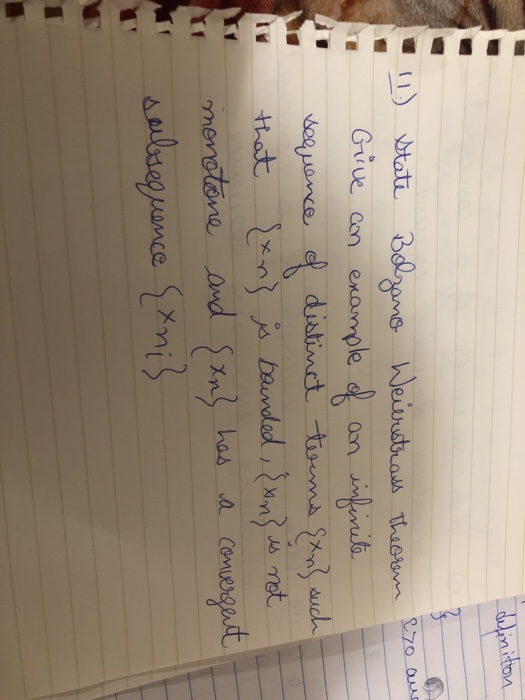 11.) State Bolzano Weierstrass theorem
Give an example of an infinite
sequence of distinct terms {xn} such
that {xn} is bounded, {xn} is not
monotone and {xn} has a convergent
subsequence {xni}
definition